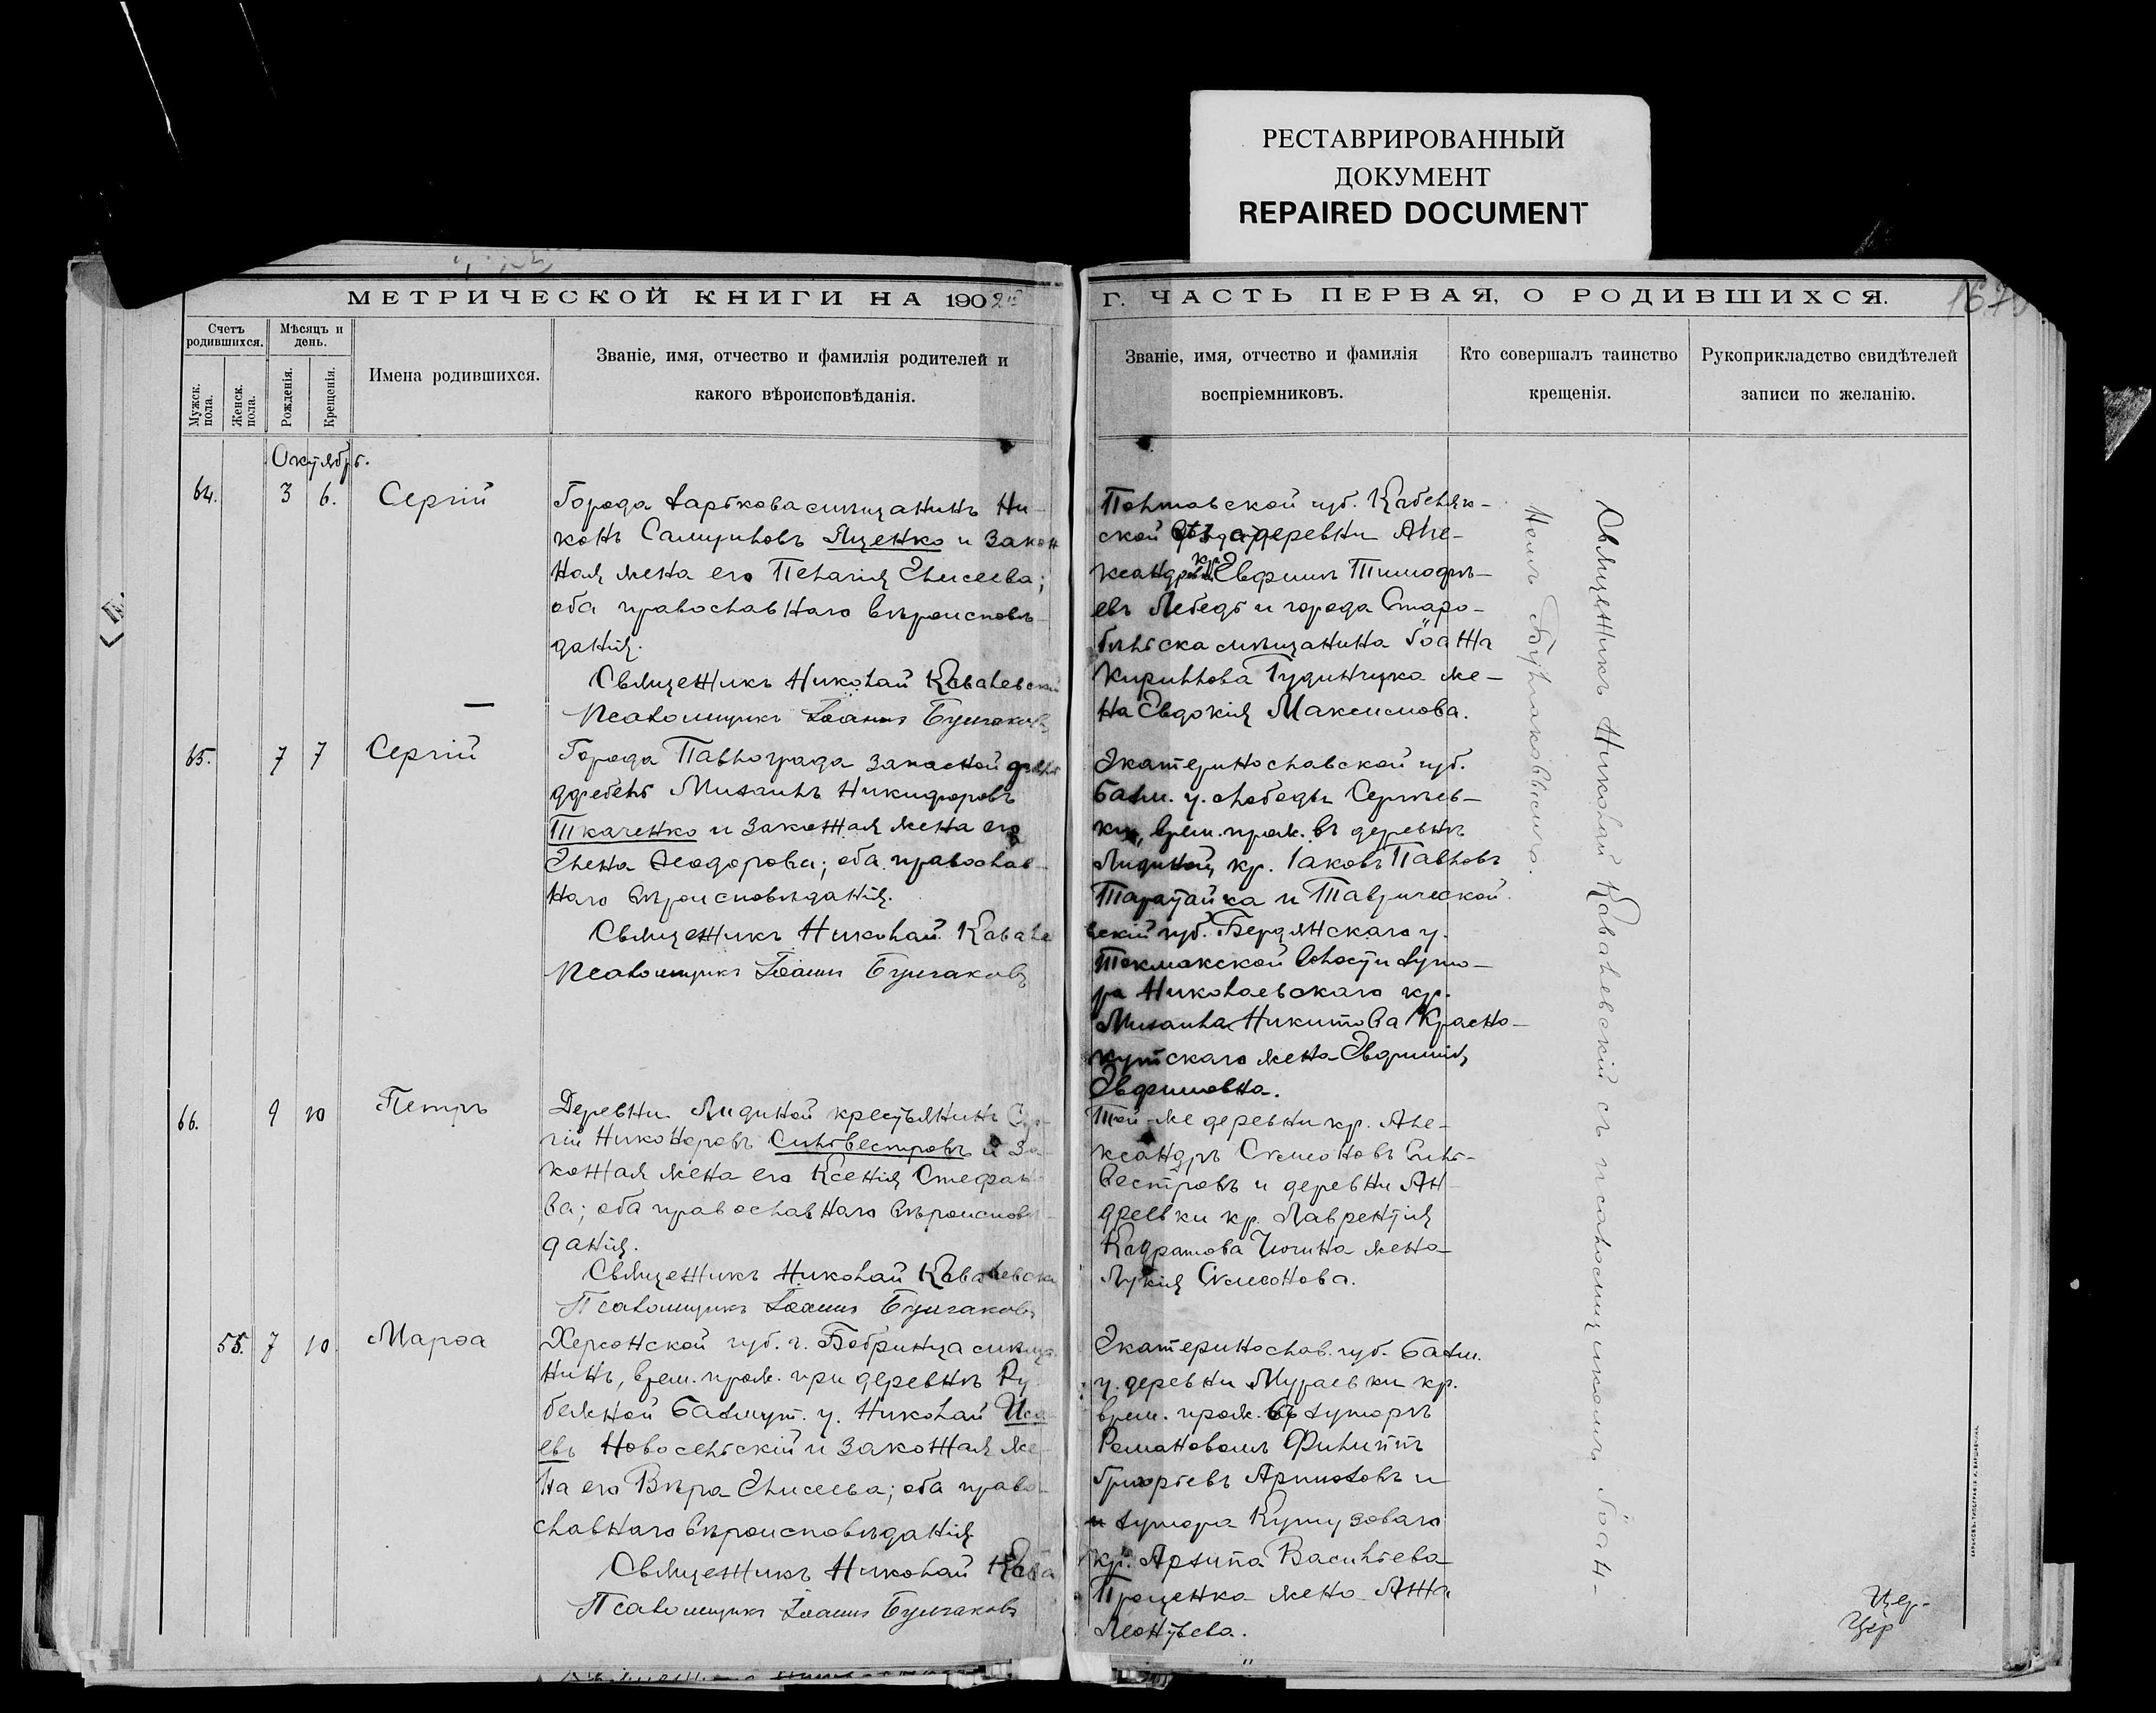 РЕСТАВРИРОВАННЫЙ
ДОКУМЕНТ
REPAIRED DOCUMENT
МЕТРИЧЕСКОЙ КНИГИ НА 1902
Г. ЧАСТЬ ПЕРВАЯ, О РОДИВШИХСЯ.
Счетъ родившихся.
Мужск. пола.
Женск. пола.
Мѣсяцъ и день.
Рожденія.
Крещенія.
Имена родившихся.
Званіе, имя, отчество и фамилія родителей и
какого вѣроисповѣданія.
Званіе, имя, отчество и фамилія
воспріемниковъ.
Кто совершалъ таинство
крещенія.
Рукоприкладство свидѣтелей
записи по желанію.
Октябрь.
64. 3 6. Сергій
Города Харькова мѣщанинъ Ни-
конъ Самуиловъ Яценко и закон
ная жена его Пелагія Елисеева;
оба православнаго вѣроисповѣ-
данія.
Священникъ Николай Ковалевскій
Псаломщикъ Іоаннъ Булгаковъ
Полтавской губ. Кобеляк-
ской деревни Але-
ксандров кр. Евфимъ Тимофѣ-
евъ Лебедь и города Старо-
бѣльска мѣщанина Іоанна
Кириллова жe-
на Евдокія Максимова.
65. 7 7 Сергій
Города Павлограда запасной
Михаилъ Никифоровъ
Ткаченко и законная жена его
Елена Ѳеодорова; оба православ-
наго вѣроисповѣданія.
Священникъ Николай Ковале
Псаломщикъ Іоаннъ Булгаковъ
Екатеринославской губ.
Бахм. у. слободы Сергѣев-
ки, врем. прож. въ деревнѣ
Лидиной, кр. Іаковъ Павловъ
Таратайка и Таврической
губ. Бердянскаго у.
Токмакской волости хуто-
ра Николаевскаго кр.
Михаила Никитова Красно-
кутскаго жена Евфимія
Евфимовна.
66. 9 10 Петръ
Деревни Лидиной крестьянинъ Сер-
гій Никоноровъ Сильвестровъ и за-
конная жена его Ксенія Стефано
ва; оба православнаго вѣроисповѣ-
данія.
Священникъ Николай Ковалевскій
Псаломщикъ Іоаннъ Булгаковъ
Той-же деревни кр. Але-
ксандръ Симоновъ Силь-
вестровъ и деревни Ан-
дреевки кр. Лаврентія
жена
Лукія Симонова.
55. 7 10. Марѳа
Херсонской губ. г. Бобринца мѣща
нинъ, врем. прож. при деревнѣ Ру
бежной Бахмут. у. Николай Иса
евъ Новосельскій и законная же-
на его Вѣра Елисеева; оба право-
славнаго вѣроисповѣданія
Священникъ Николай Кова
Псаломщикъ Іоаннъ Булгаковъ
Екатеринослав. губ. Бахм.
у. деревни Мураевки кр.
врем. прож. въ хуторѣ
Романовомъ Филиппъ
Григорьевъ и
хутора Кутузоваго
кр. Архипа Васильева
Проценка жена Анна
Леонтьева.
Священникъ Николай Ковалевскій съ псаломщикомъ Іоан-
номъ Булгаковымъ.